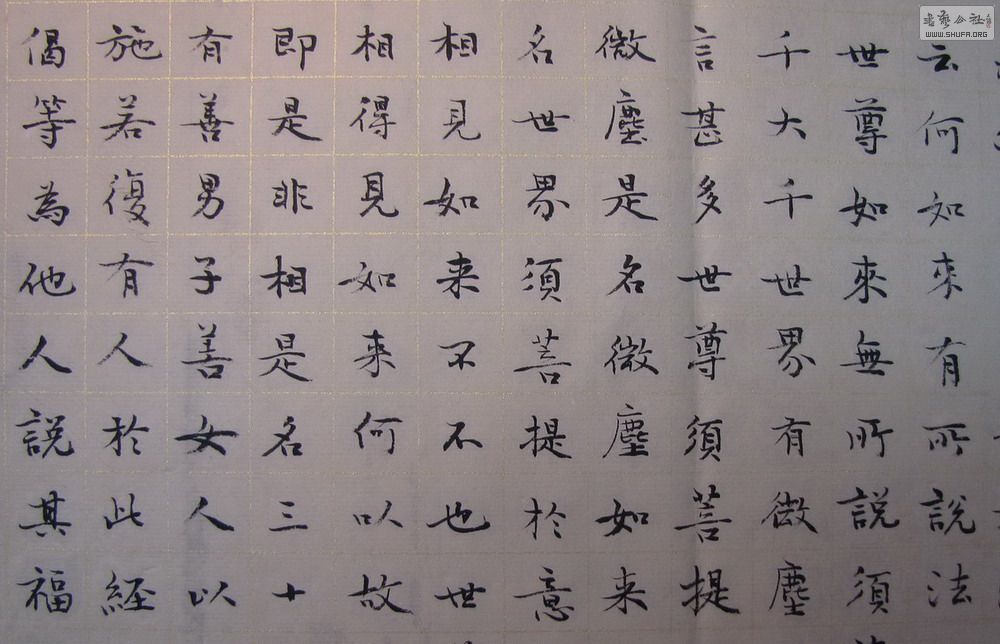 云何如來有所說法
世尊如來無所說須
千大千世界有微塵
言甚多世尊須菩提
微塵是名微塵如来
名世界須菩提於意
相見如来不不也世
相得見如来何以故
即是非相是名三十
有善男子善女人以
施若復有人於此經
偈等為他人說其福
WWW.SHUFA.ORG